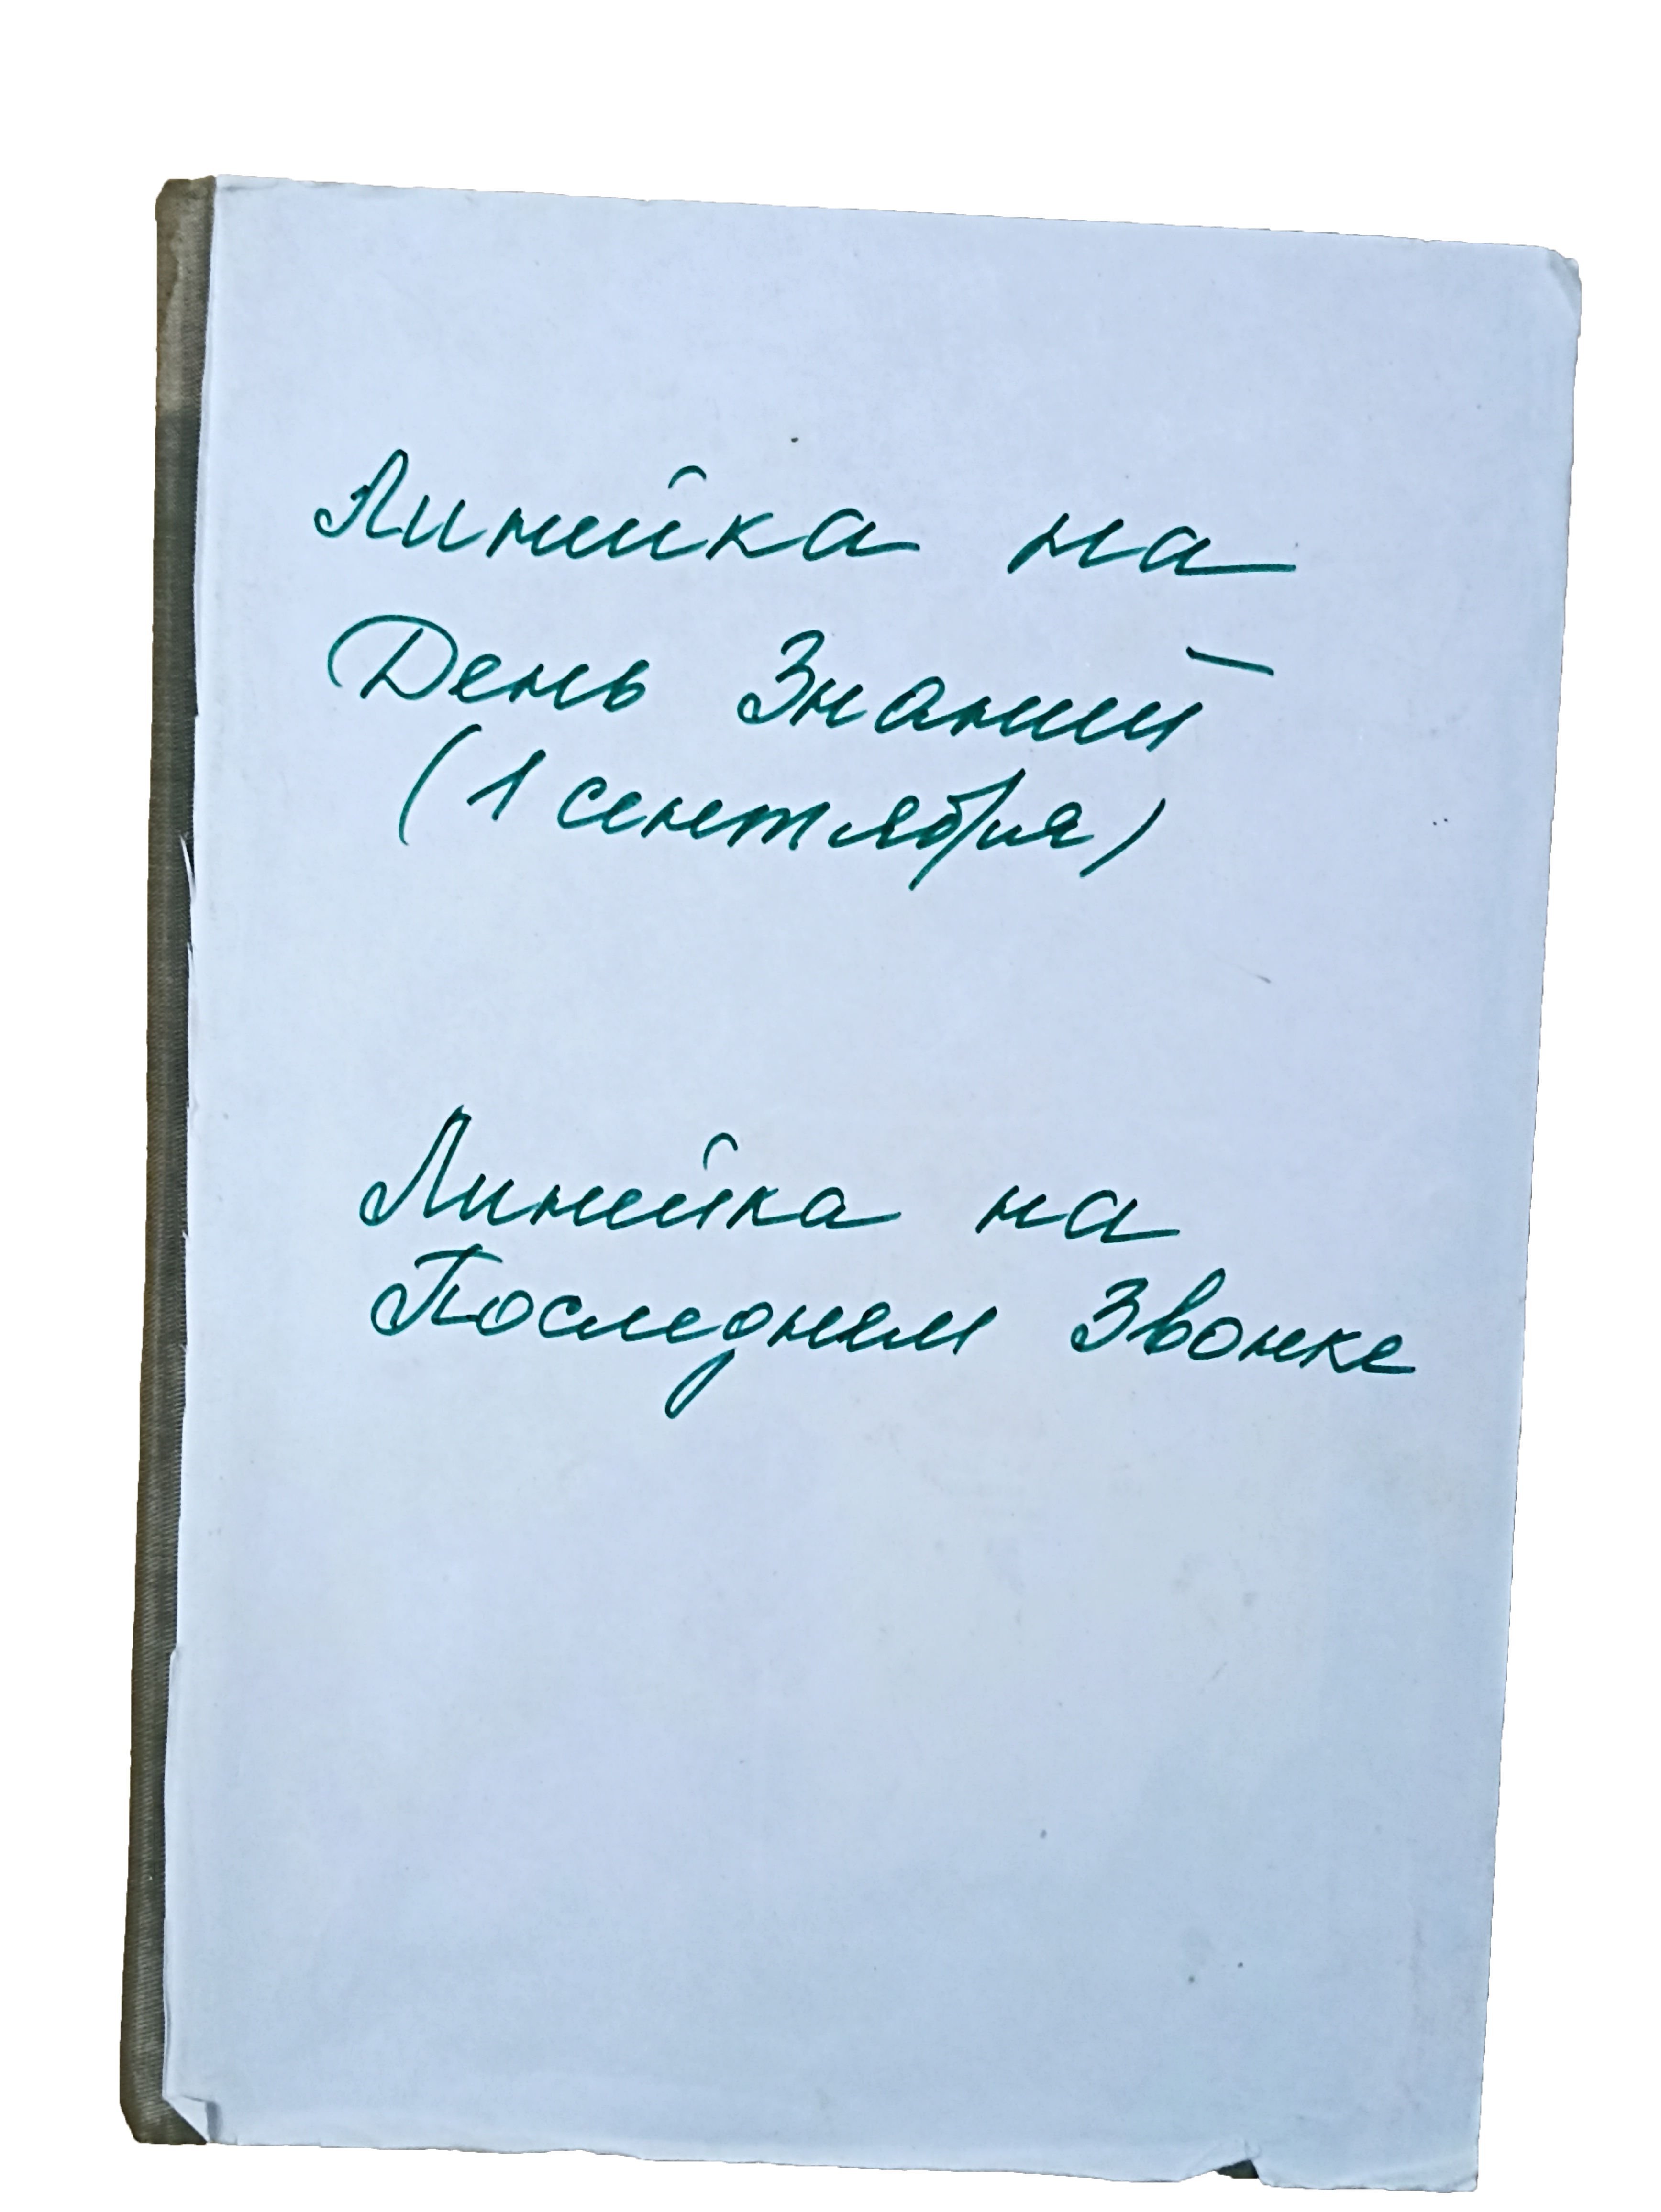 Линейка на
День Знаний
(1 сентября)
Линейка на
Последнем Звонке